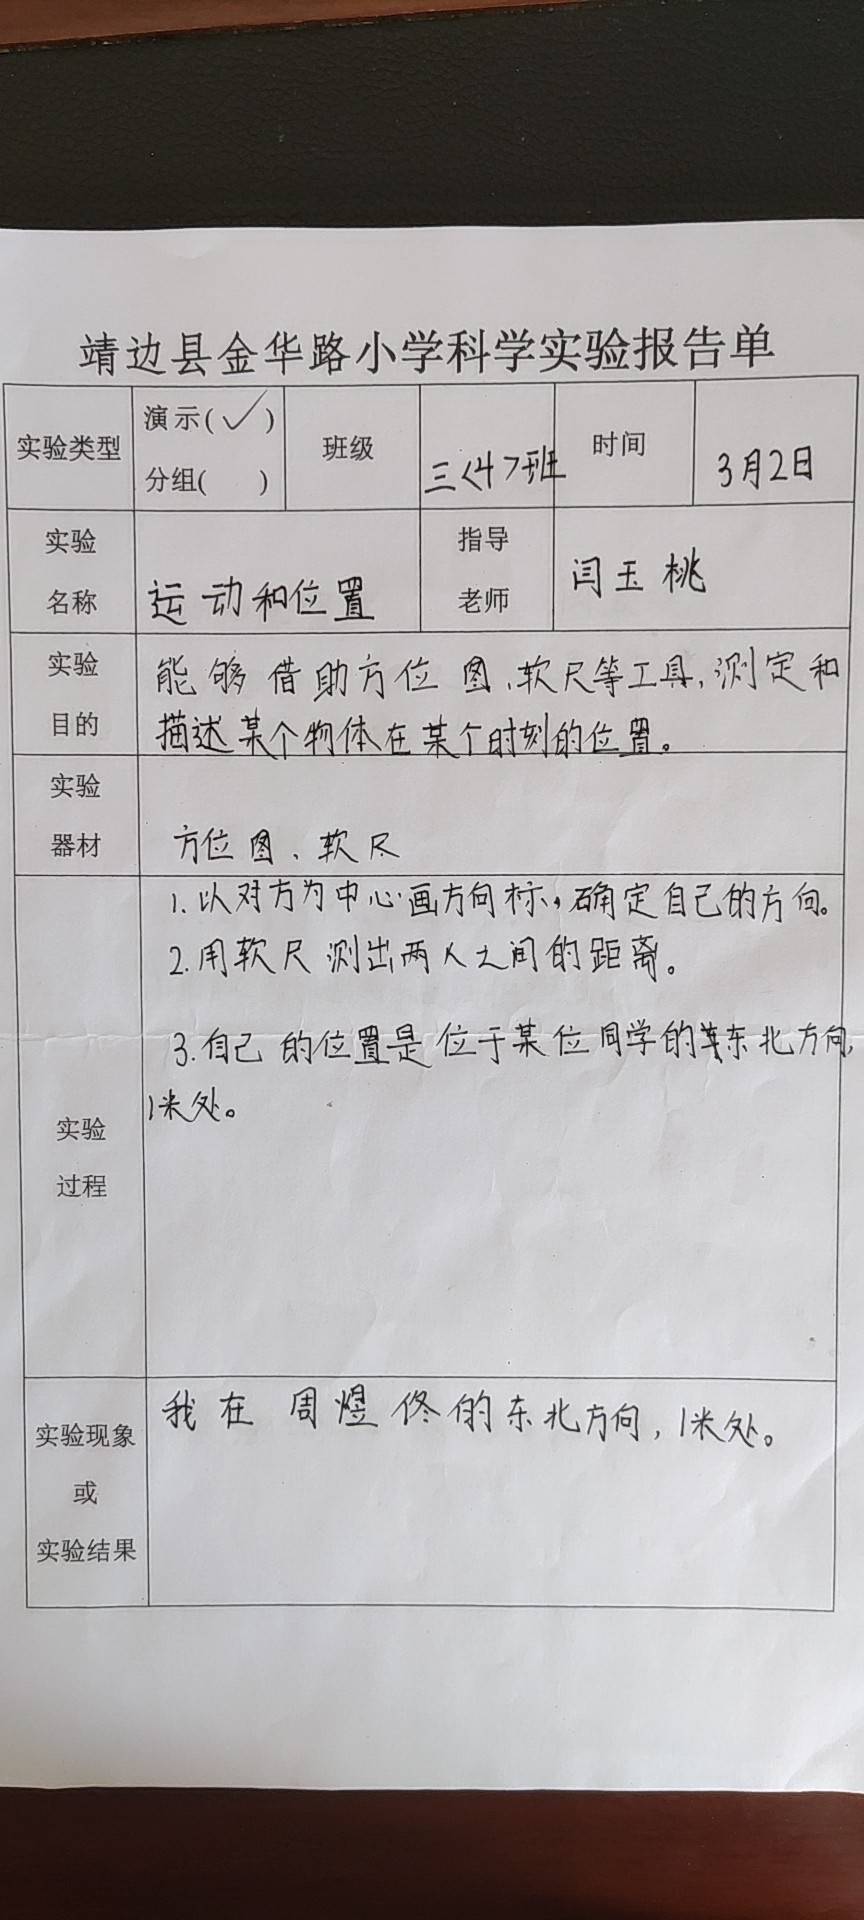 靖边县金华路小学科学实验报告单
实验类型
演示(✓)
分组( )
班级
三<4>班
时间
3月2日
实验
名称
运动和位置
指导
老师
闫玉桃
实验
目的
能够借助方位图、软尺等工具,测定和
描述某个物体在某个时刻的位置。
实验
器材
方位图、软尺
实验
过程
1.以对方为中心画方向标,确定自己的方向。
2.用软尺测出两人之间的距离。
3.自己的位置是位于某位同学的东北方向,
1米处。
实验现象
或
实验结果
我在周煜佟的东北方向,1米处。